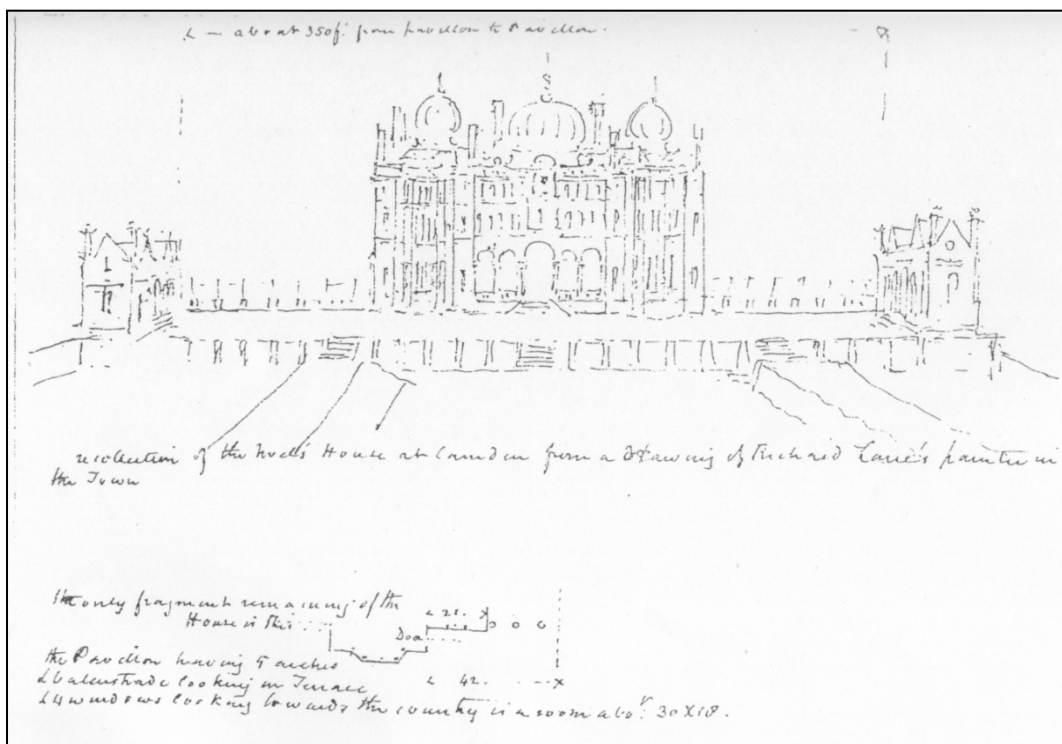 < — about 350f. from Pavillon to Pavillon.
recollection of the Noel's House at Camden from a Drawing of Richard Lane's painter in
the Town
the only fragment remaining of the
House is this
< 21. X
Doo
the Pavillon having 5 arches
& balustrade looking on Terrace
< 42. X
& 4 windows looking towards the country is a room abot. 30 X 18.